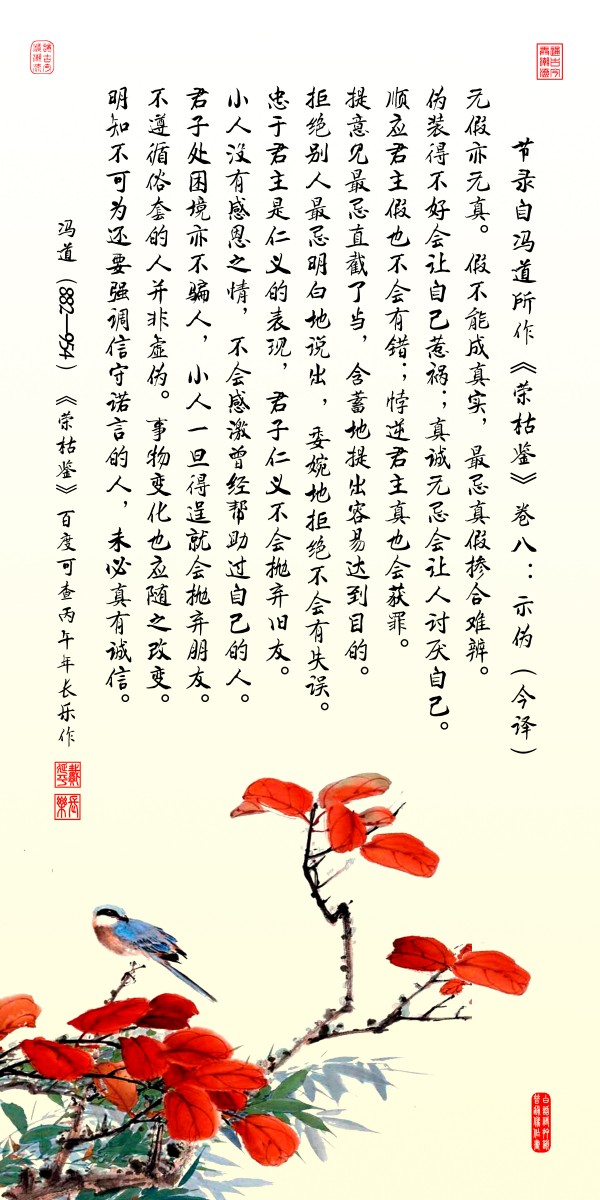 节录自冯道所作《荣枯鉴》卷八：示伪（今译）
无假亦无真。假不能成真实，最忌真假掺合难辨。
伪装得不好会让自己惹祸；真诚无忌会让人讨厌自己。
顺应君主假也不会有错；悖逆君主真也会获罪。
提意见最忌直截了当，含蓄地提出容易达到目的。
拒绝别人最忌明白地说出，委婉地拒绝不会有失误。
忠于君主是仁义的表现，君子仁义不会抛弃旧友。
小人没有感恩之情，不会感激曾经帮助过自己的人。
君子处困境亦不骗人，小人一旦得逞就会抛弃朋友。
不遵循俗套的人并非虚伪。事物变化也应随之改变。
明知不可为还要强调信守诺言的人，未必真有诚信。
冯道（882—954）《荣枯鉴》百度可查丙午年长乐作